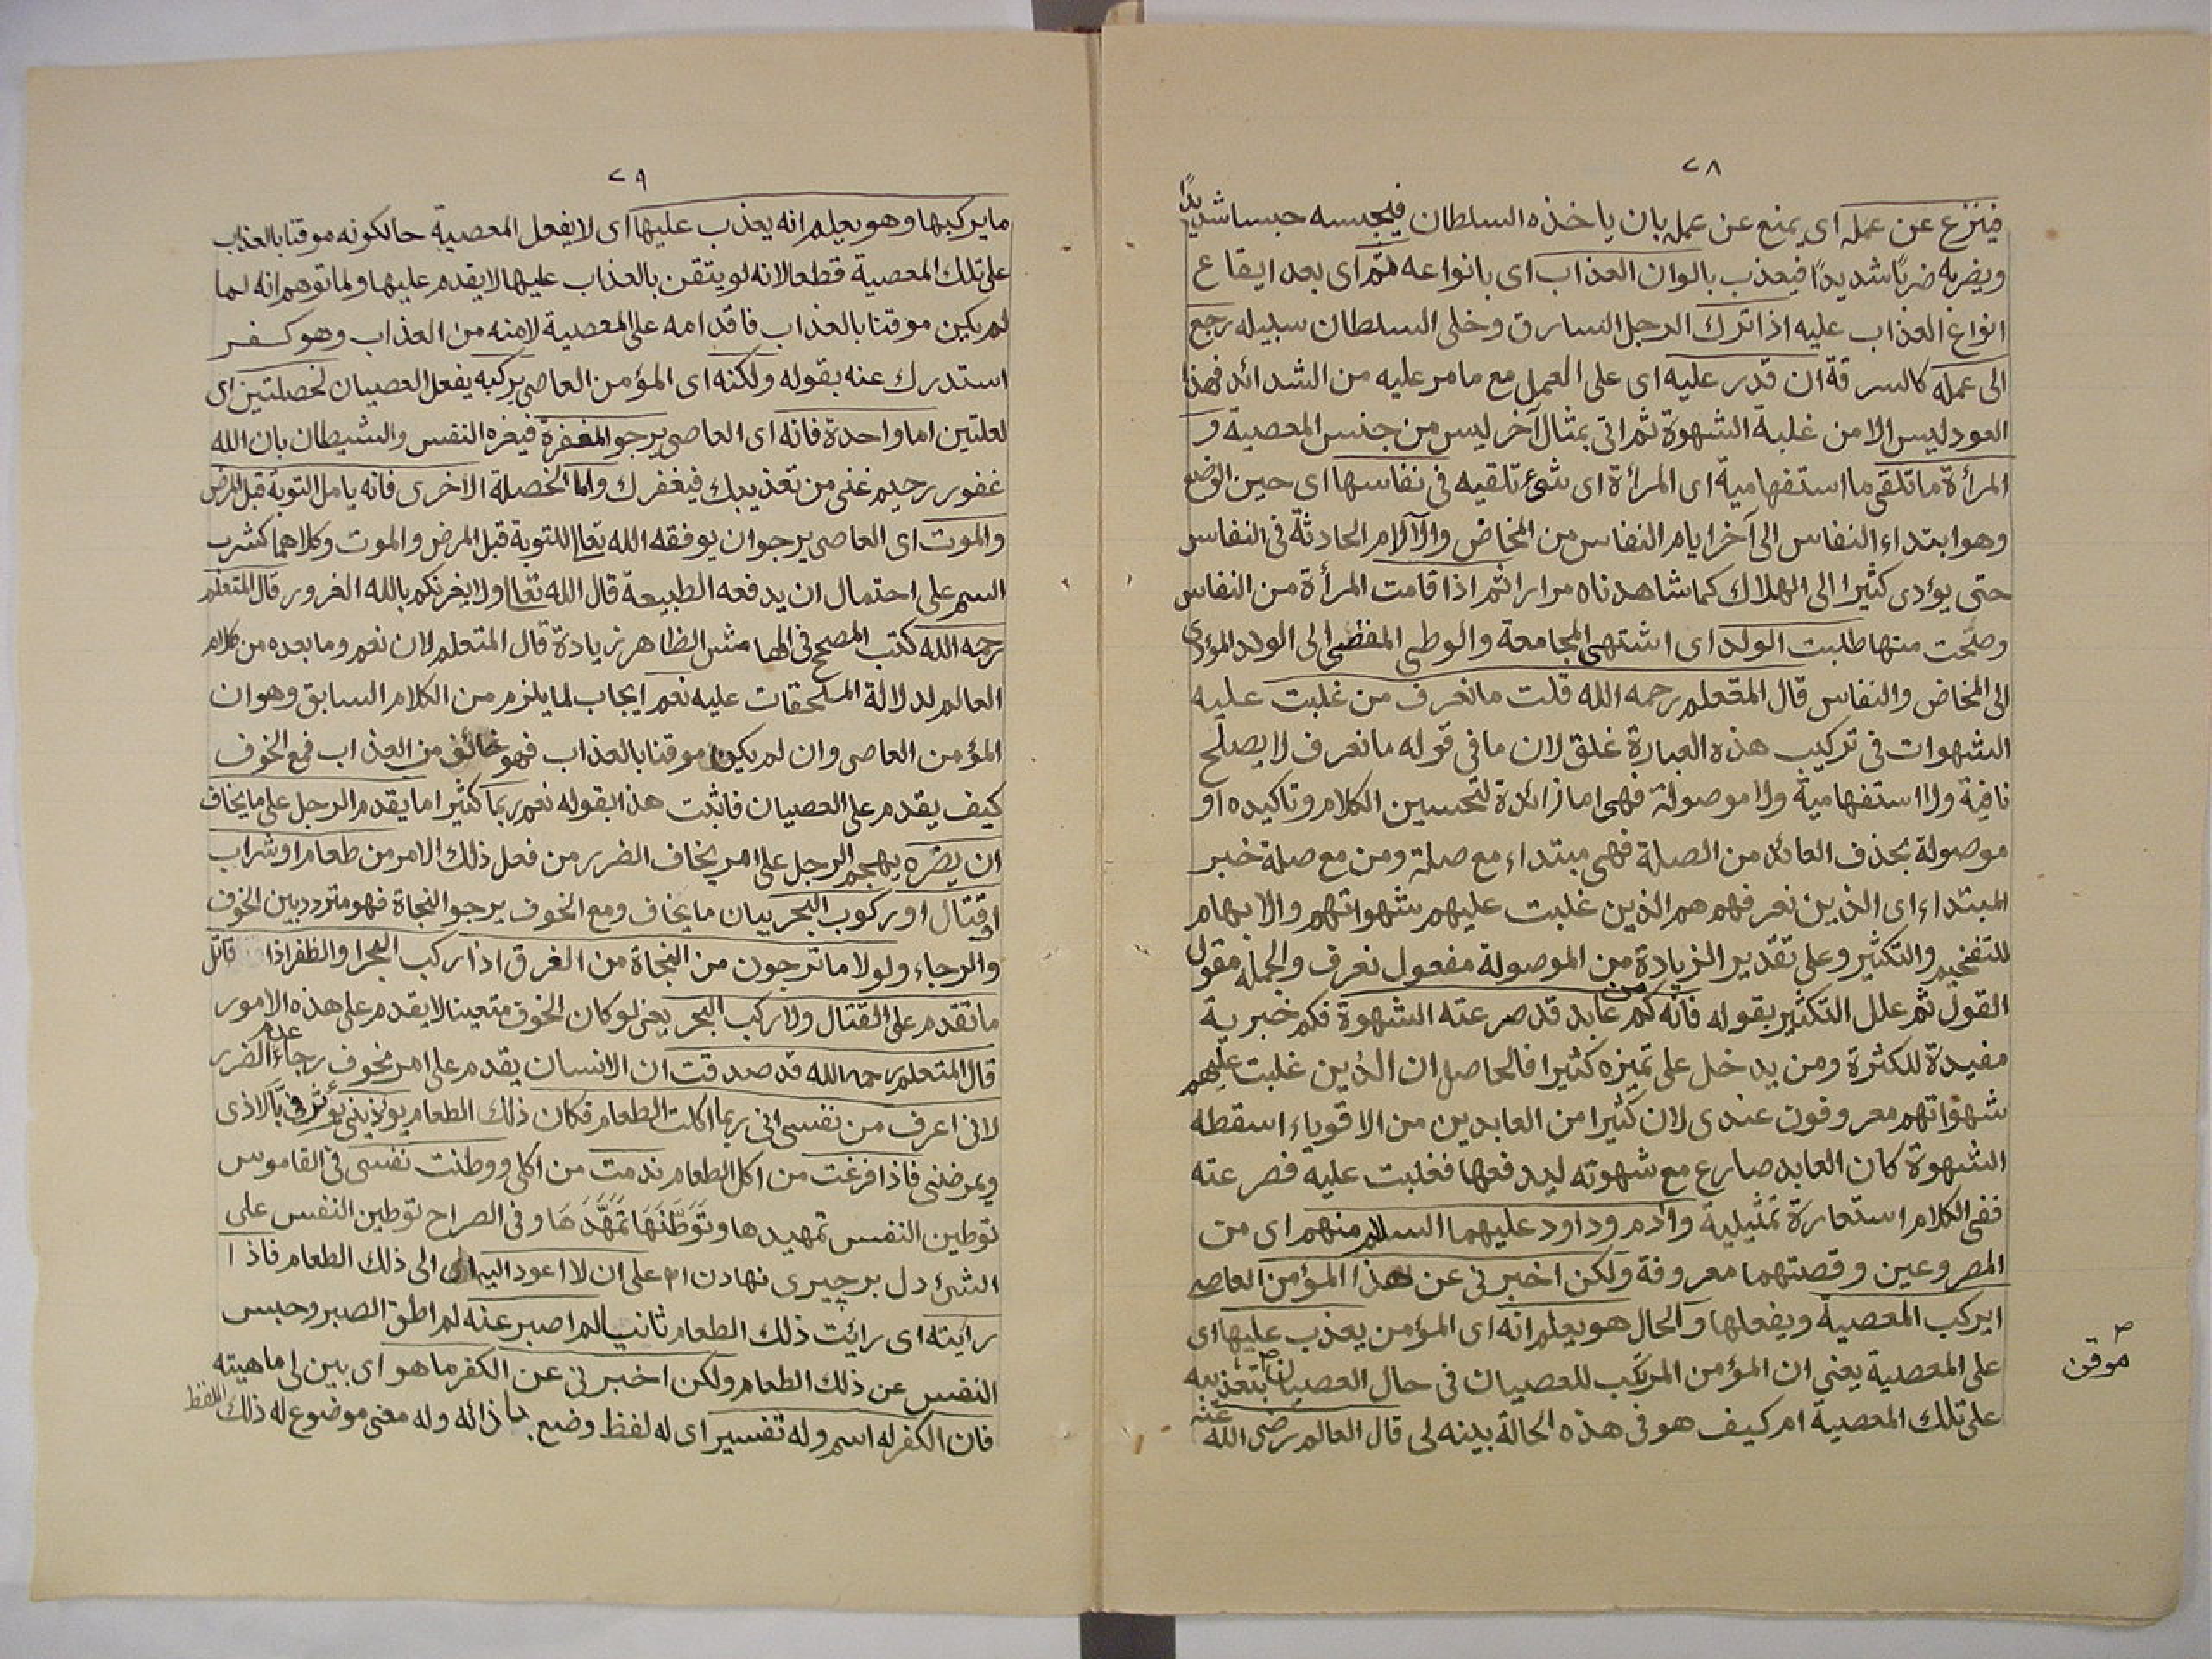 ٢٨
فينزع عن عمله اى يمنع عن عمله بان ياخذه السلطان فيحبسه حبسا شديدًا
ويضربه ضربًا شديدًا فيعذب بالوان العذاب اى بانواعه ثم اى بعد ايقاع
انواع العذاب عليه اذا ترك الرجل السارق وخلى السلطان سبيله رجع
الى عمله كالسرقة ان قدر عليه اى على العمل مع ما مر عليه من الشدائد فهذا
العود ليس الا من غلبة الشهوة ثم اتى بمثال آخر ليس من جنس المعصية و
المرأة ما تلقى ما استفهامية اى المرأة اى شئ تلقيه فى نفاسها اى حين الوضع
وهو ابتداء النفاس الى آخر ايام النفاس من المخاض والآلام الحادثة فى النفاس
حتى يؤدى كثيرا الى الهلاك كما شاهدناه مرارا ثم اذا قامت المرأة من النفاس
وصحت منها طلبت الولد اى اشتهى المجامعة والوطى المفضى الى الولد المؤدى
الى المخاض والنفاس قال المتعلم رحمه الله قلت ما نعرف من غلبت عليه
الشهوات فى تركيب هذه العبارة غلق لان ما فى قوله ما نعرف لا يصلح
نافية ولا استفهامية ولا موصولة فهى اما زائدة لتحسين الكلام وتاكيده او
موصولة بحذف العائد من الصلة فهى مبتداء مع صلة ومن مع صلة خبر
المبتداء اى الذين نعرفهم هم الذين غلبت عليهم شهواتهم والابهام
للتفخيم والتكثير وعلى تقدير الزيادة من الموصولة مفعول نعرف والجملة مقول
القول ثم علل التكثير بقوله فانه كم من عابد قد صرعته الشهوة فكم خبرية
مفيدة للكثرة ومن يدخل على تميزه كثيرا فالحاصل ان الذين غلبت عليهم
شهواتهم معروفون عندى لان كثيرا من العابدين من الاقوياء اسقطه
الشهوة كان العابد صارع مع شهوته ليدفعها فغلبت عليه فصرعته
ففى الكلام استعارة تمثيلية وآدم وداود عليهما السلام منهم اى من
المصروعين وقصتهما معروفة ولكن اخبرنى عن هذا المؤمن العاصى
ايركب المعصية ويفعلها والحال هو يعلم انه اى المؤمن يعذب عليها اى
على المعصية يعنى ان المؤمن المرتكب للعصيان فى حال العصيان بتعذيبه
موقن
على تلك المعصية ام كيف هو فى هذه الحالة بينه لى قال العالم رضى الله عنه
٢٩
ما يركبها وهو يعلم انه يعذب عليها اى لا يفعل المعصية حالكونه موقنا بالعذاب
على تلك المعصية قطعا لانه لو يتقن بالعذاب عليها لا يقدم عليها ولما توهم انه لما
لم يكن موقنا بالعذاب فاقدامه على المعصية لامنه من العذاب وهو كفر
استدرك عنه بقوله ولكنه اى المؤمن العاصى يركبه يفعل العصيان لخصلتين اى
لعلتين اما واحدة فانه اى العاصى يرجو المغفرة فيغره النفس والشيطان بان الله
غفور رحيم غنى من تعذيبك فيغفرك واما الخصلة الاخرى فانه يامل التوبة قبل المرض
والموت اى العاصى يرجو ان يوفقه الله تعالى للتوبة قبل المرض والموت وكلاهما كشرب
السم على احتمال ان يدفعه الطبيعة قال الله تعالى ولا يغرنكم بالله الغرور قال المتعلم
رحمه الله كتب المصحح فى الهامش الظاهر زيادة قال المتعلم لان نعم وما بعده من كلام
العالم لدلالة الملحقات عليه نعم ايجاب لما يلزم من الكلام السابق وهو ان
المؤمن العاصى وان لم يكن موقنا بالعذاب فهو خائف من العذاب فمع الخوف
كيف يقدم على العصيان فاثبت هذا بقوله نعم ربما كثيرا ما يقدم الرجل على ما يخاف
ان يضره يهجم الرجل على امر يخاف الضرر من فعل ذلك الامر من طعام او شراب
او قتال او ركوب البحر بيان ما يخاف ومع الخوف يرجو النجاة فهو متردد بين الخوف
والرجاء ولولا ما ترجون من النجاة من الغرق اذا ركب البحر او الظفر اذا قاتل
ما تقدم على القتال ولا ركب البحر يعنى لو كان الخوف متعينا لا يقدم على هذه الامور
قال المتعلم رحمه الله قد صدقت ان الانسان يقدم على امر مخوف رجاء عدم الضرر
لانى اعرف من نفسى انى ربما اكلت الطعام فكان ذلك الطعام يؤذينى يؤثر فى بالاذى
ويمرضنى فاذا فرغت من اكل الطعام ندمت من اكلى ووطنت نفسى فى القاموس
توطين النفس تمهيدها وتَوَطَّنَهَا تَمَهَّدَهَا وفى الصراح توطين النفس على
الشئ دل بر چيرى نهادن اه على ان لا اعود اليه اى الى ذلك الطعام فاذا
رايته اى رائيت ذلك الطعام ثانيا لم اصبر عنه لم اطق الصبر وحبس
النفس عن ذلك الطعام ولكن اخبرنى عن الكفر ما هو اى بين لى ماهيته
فان الكفر له اسم وله تفسير اى له لفظ وضع بازائه وله معنى موضوع له ذلك اللفظ